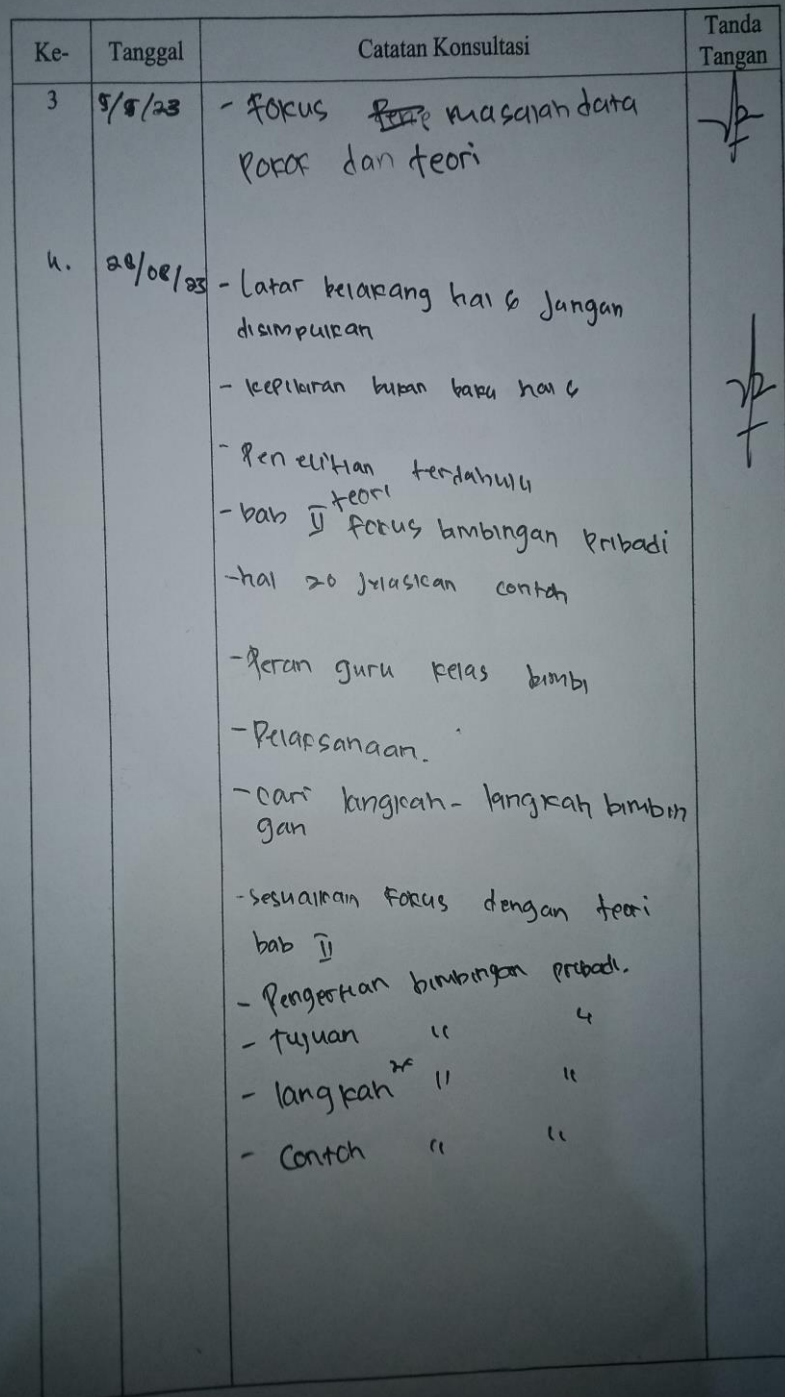 Ke- Tanggal Catatan Konsultasi Tanda Tangan
3 5/5/23 - Fokus masalah data
pokok dan teori
4. 28/08/23 - Latar belakang hal 6 Jangan
disimpulkan
- kepikiran bukan baku hal 6
- Penelitian terdahulu
- bab II teori fokus bimbingan Pribadi
- hal 20 Jelaskan contoh
- Peran guru kelas bimbi
- Pelaksanaan.
- cari langkah - langkah bimbin
gan
- Sesuaikan Fokus dengan teori
bab II
- Pengertian bimbingan pribadi.
- tujuan " "
- langkah " "
- Contoh " "